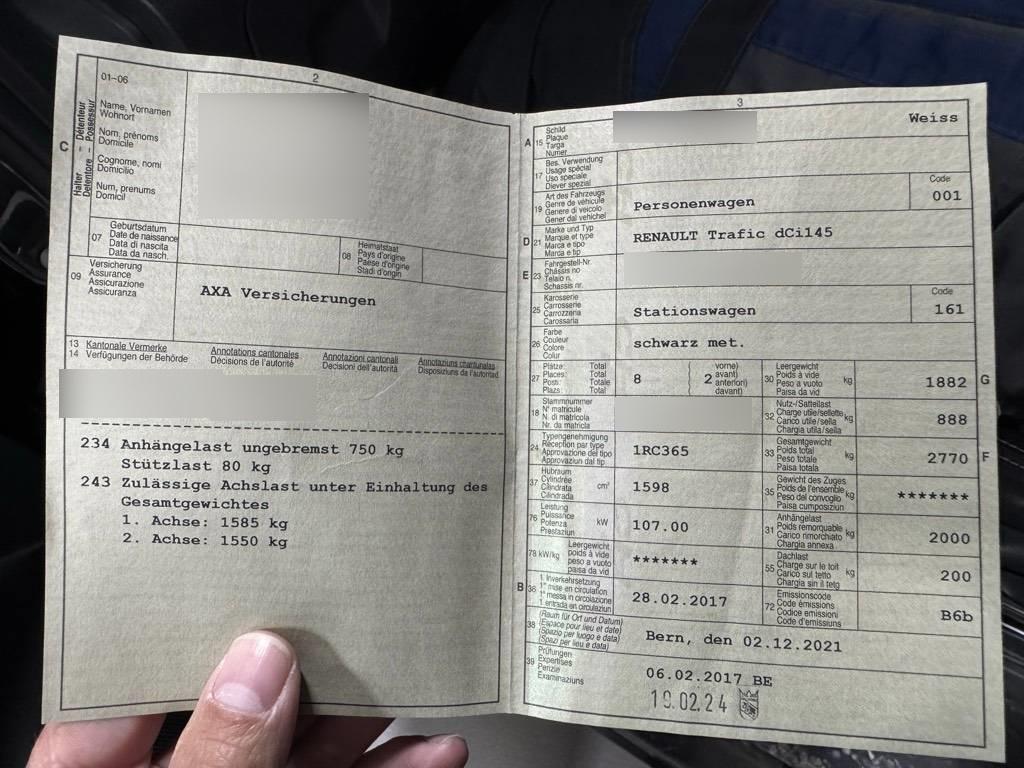 2
01-06
C
Halter – Détenteur
Detentore – Possessur
Name, Vornamen
Wohnort
Nom, prénoms
Domicile
Cognome, nomi
Domicilio
Num, prenums
Domicil
07
Geburtsdatum
Date de naissance
Data di nascita
Data da nasch.
08
Heimatstaat
Pays d'origine
Paese d'origine
Stadi d'origin
09
Versicherung
Assurance
Assicurazione
Assicuranza
AXA Versicherungen
13 Kantonale Vermerke Annotations cantonales Annotazioni cantonali Annotaziuns chantunalas
14 Verfügungen der Behörde Décisions de l'autorité Decisioni dell'autorità Disposiziuns da l'autoritad
234 Anhängelast ungebremst 750 kg
Stützlast 80 kg
243 Zulässige Achslast unter Einhaltung des
Gesamtgewichtes
1. Achse: 1585 kg
2. Achse: 1550 kg
3
A 15
Schild
Plaque
Targa
Numer
Weiss
17
Bes. Verwendung
Usage spécial
Uso speciale
Diever spezial
19
Art des Fahrzeugs
Genre de véhicule
Genere di veicolo
Gener dal vehichel
Personenwagen
Code
001
D 21
Marke und Typ
Marque et type
Marca e tipo
Marca e tip
RENAULT Trafic dCi145
E 23
Fahrgestell-Nr.
Châssis no
Telaio n.
Schassis nr.
25
Karosserie
Carrosserie
Carrozzeria
Carossaria
Stationswagen
Code
161
26
Farbe
Couleur
Colore
Colur
schwarz met.
27
Plätze: Total
Places: Total
Posti: Totale
Plazs: Total
8
2
vorne)
avant)
anteriori)
davant)
30
Leergewicht
Poids à vide
Peso a vuoto
Paisa da vid
kg
1882 G
18
Stammnummer
N° matricule
N. di matricola
Nr. da matricla
32
Nutz-/Sattellast
Charge utile/sellette
Carico utile/sella
Chargia utila/sella
kg
888
24
Typengenehmigung
Réception par type
Approvazione del tipo
Approvaziun dal tip
1RC365
33
Gesamtgewicht
Poids total
Peso totale
Paisa totala
kg
2770 F
37
Hubraum
Cylindrée
Cilindrata
Cilindrada
cm³
1598
35
Gewicht des Zuges
Poids de l'ensemble
Peso del convoglio
Paisa cumposiziun
kg
*******
76
Leistung
Puissance
Potenza
Prestaziun
kW
107.00
31
Anhängelast
Poids remorquable
Carico rimorchiato
Chargia annexa
kg
2000
78 kW/kg
Leergewicht
poids à vide
peso a vuoto
paisa da vid
*******
55
Dachlast
Charge sur le toit
Carico sul tetto
Chargia sin il tetg
kg
200
B 36
1. Inverkehrsetzung
1re mise en circulation
1a messa in circolazione
1. entrada en circulaziun
28.02.2017
72
Emissionscode
Code émissions
Codice emissioni
Code d'emissiuns
B6b
38
(Raum für Ort und Datum)
(Espace pour lieu et date)
(Spazio per luogo e data)
(Spazi per lieu e data)
Bern, den 02.12.2021
39
Prüfungen
Expertises
Perizie
Examinaziuns
06.02.2017 BE
19.02.24